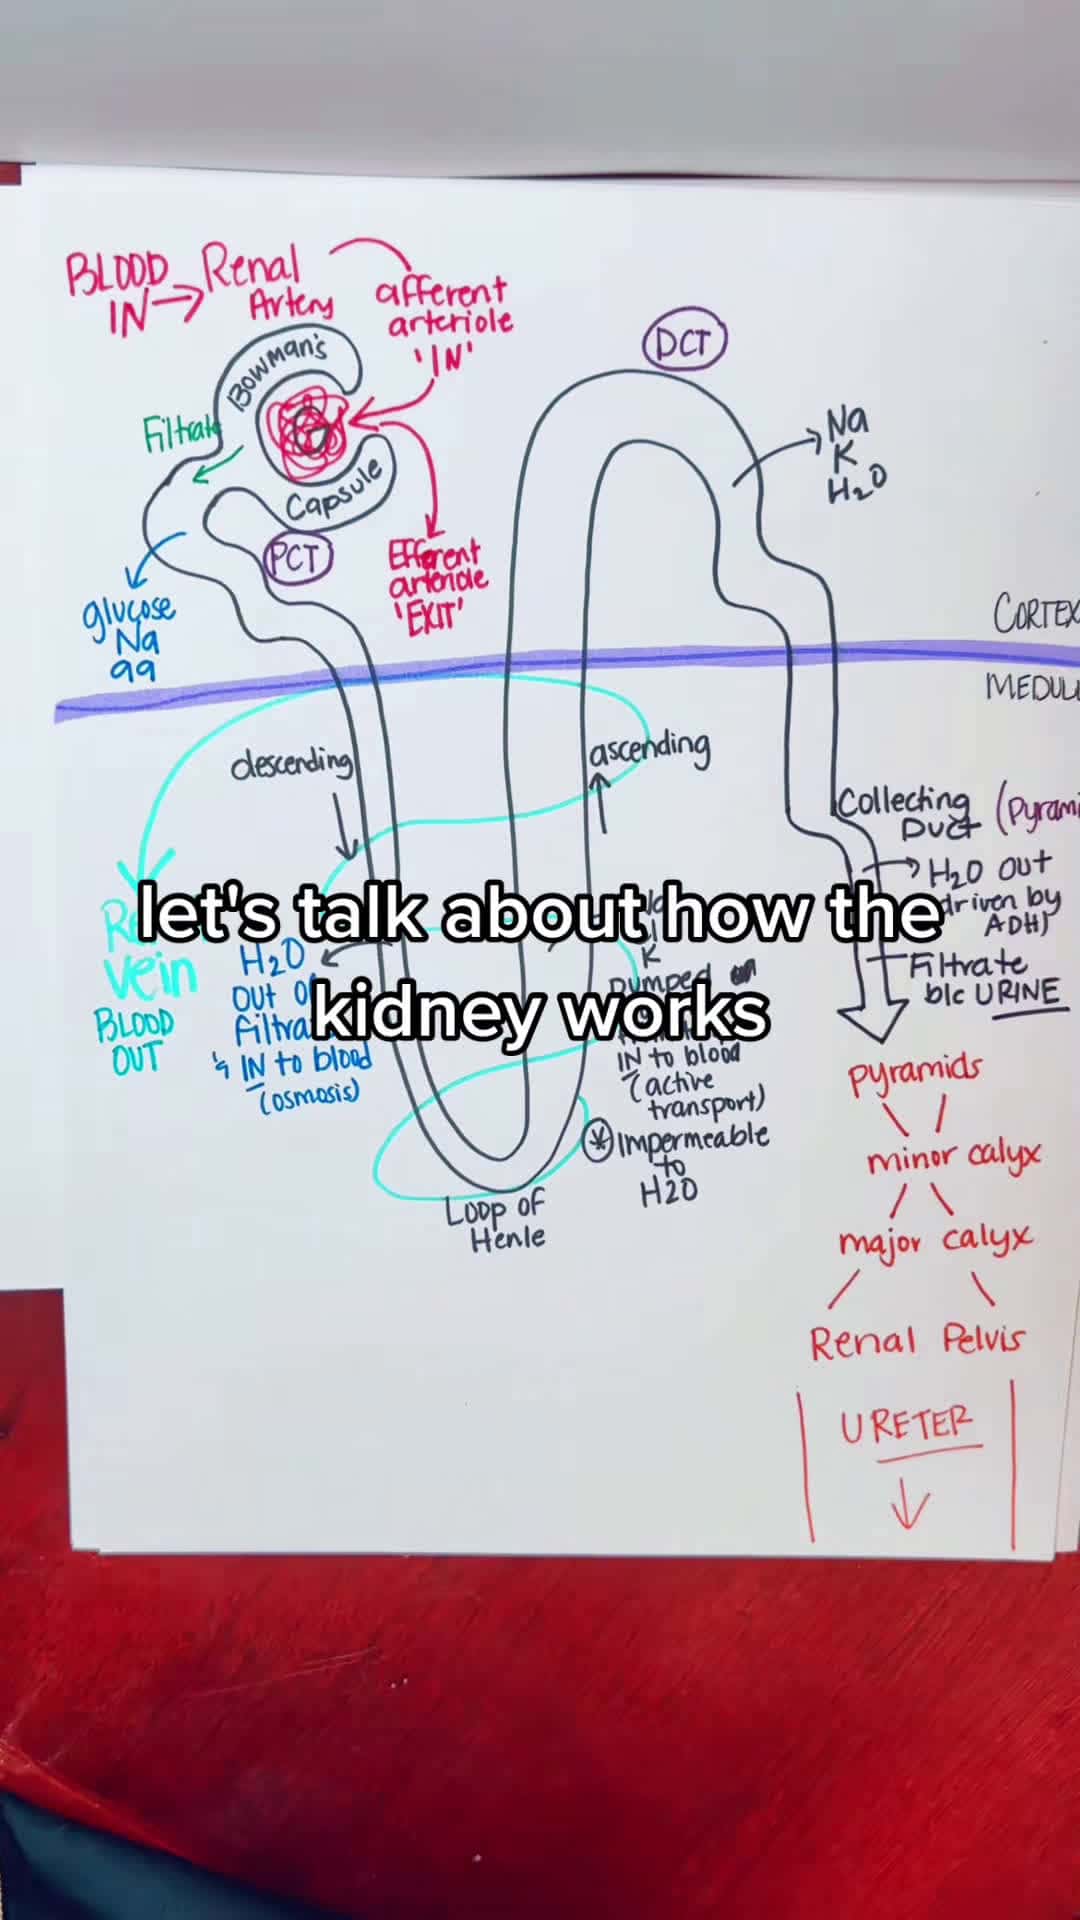 BLOOD Renal
IN → Artery
afferent
arteriole
'IN'
Bowman's
Capsule
Filtrate
PCT
Efferent
arteriole
'EXIT'
glucose
Na
aa
DCT
Na
K
H2O
CORTEX
descending
ascending
Collecting (pyrami
Duct
H2O OUT
driven by
ADH)
Filtrate
b/c URINE
let's talk about how the
kidney works
vein
BLOOD
OUT
H2O
OUT
& IN to blood
(osmosis)
K
pumped
IN to blood
(active
transport)
* Impermeable
to
H2O
Loop of
Henle
pyramids
minor calyx
major calyx
Renal Pelvis
URETER